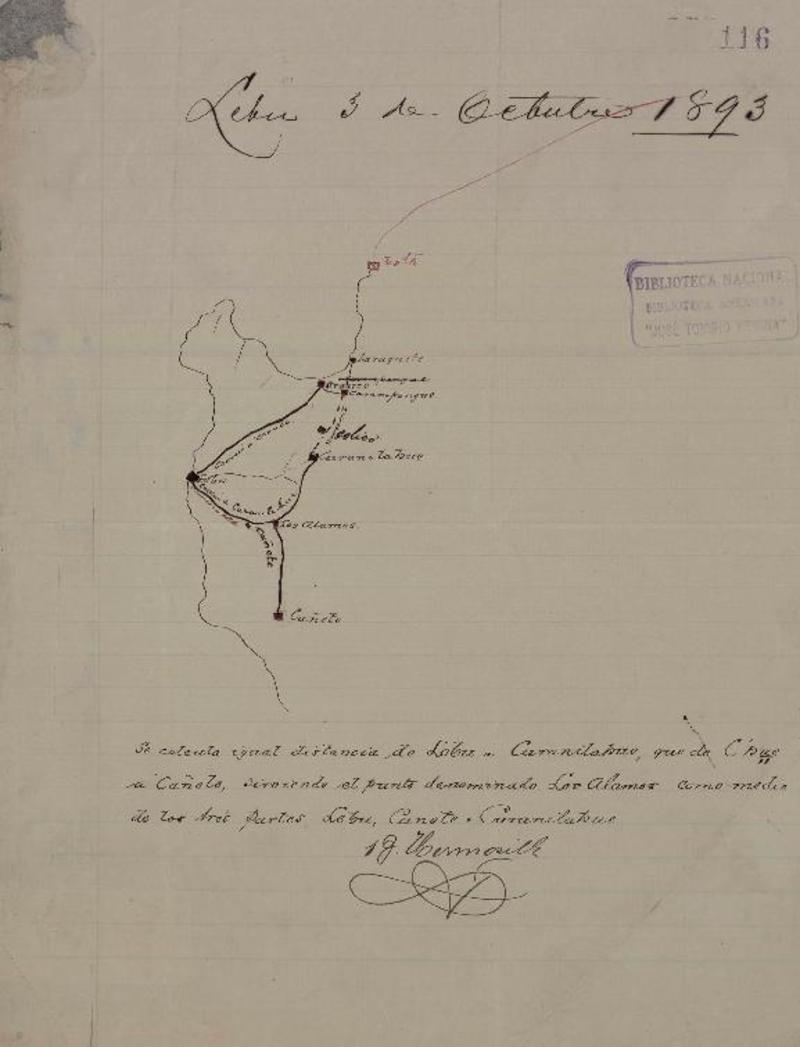 116
Lebu 3 de Octubre 1893
Lota
BIBLIOTECA NACIONAL
BIBLIOTECA AMERICANA
"JOSÉ TORIBIO MEDINA"
Laraquete
Arauco
Carampangue
Carampangue
Peolico
Curanilahue
Lebu
a Curanilahue
Los Alamos
a Cañete
Cañete
Se calcula igual distancia de Lebu a Curanilahue, que de
a Cañete, sirviendo el punto denominado Los Alamos como medio
de los tres partes Lebu, Cañete i Curanilahue